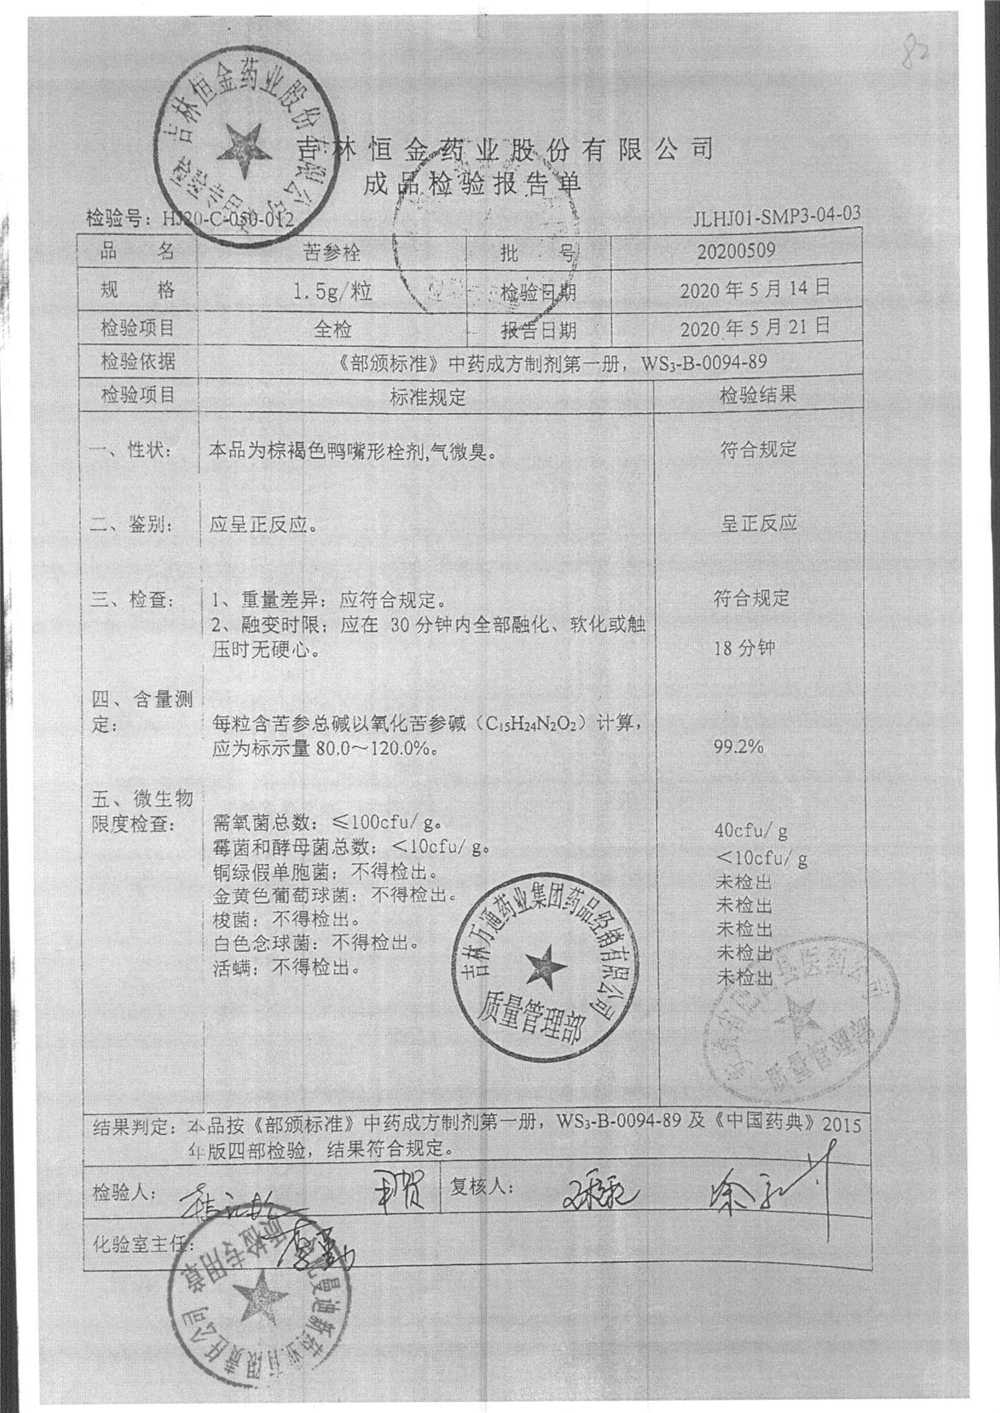 82
吉林恒金药业股份有限公司
成品检验报告单
检验号：HJ20-C-050-012 JLHJ01-SMP3-04-03
品 名 苦参栓 批 号 20200509
规 格 1.5g/粒 检验日期 2020年5月14日
检验项目 全检 报告日期 2020年5月21日
检验依据 《部颁标准》中药成方制剂第一册，WS3-B-0094-89
检验项目 标准规定 检验结果
一、性状： 本品为棕褐色鸭嘴形栓剂,气微臭。 符合规定
二、鉴别： 应呈正反应。 呈正反应
三、检查： 1、重量差异：应符合规定。 符合规定
2、融变时限：应在 30 分钟内全部融化、软化或触
压时无硬心。 18分钟
四、含量测
定： 每粒含苦参总碱以氧化苦参碱（C15H24N2O2）计算，
应为标示量 80.0～120.0%。 99.2%
五、微生物
限度检查： 需氧菌总数：≤100cfu/ g。 40cfu/ g
霉菌和酵母菌总数：＜10cfu/ g。 ＜10cfu/ g
铜绿假单胞菌：不得检出。 未检出
金黄色葡萄球菌：不得检出。 未检出
梭菌：不得检出。 未检出
白色念球菌：不得检出。 未检出
活螨：不得检出。 未检出
吉林万通药业集团药品经销有限公司
质量管理部
结果判定：本品按《部颁标准》中药成方制剂第一册，WS3-B-0094-89 及《中国药典》2015
年版四部检验，结果符合规定。
检验人： 复核人：
化验室主任：
吉林恒金药业股份有限公司
质检专用章